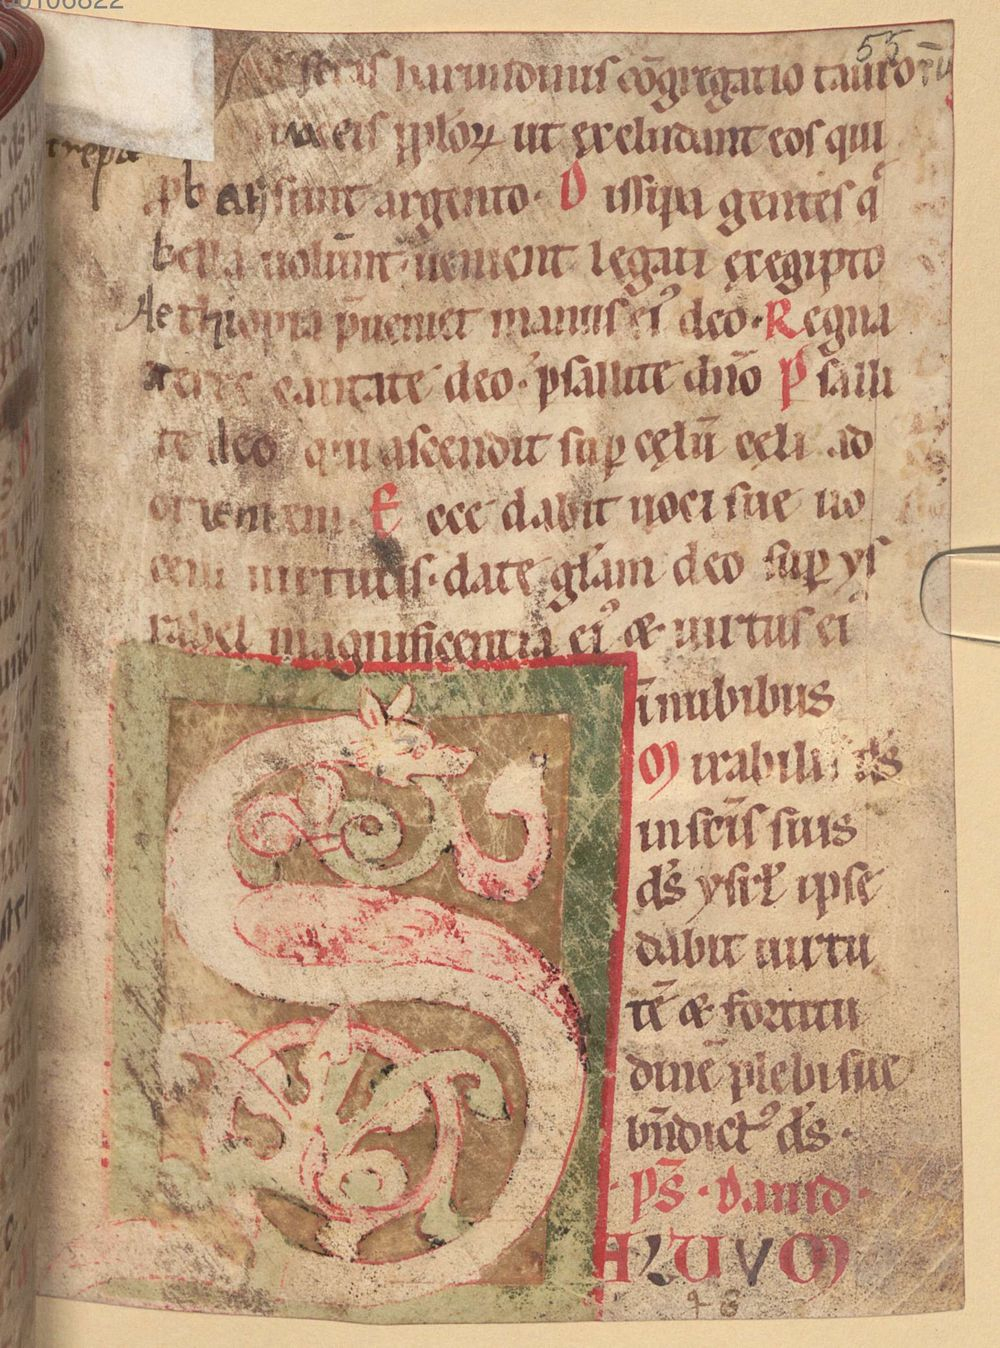 00106822
55
feras harundinis co̅gregatio tauroꝝ
in vaccis ppl̅oꝝ ut excludant eos qui
trepa
ꝓbati sunt argento· Dissipa gentes q̅
bella uolu̅nt· uenient legati exegipto
Aethiopia p̅ueniet manus ei᾽ deo· Regna
terre cantate deo· psallite dn̅o Psalli
te deo qui ascendit sup cęlu̅ cęli ad
orientem· Ecce dabit uoci sue uo
cem uirtutis· date gl̅am deo sup ys
rahel magnificentia ei᾽ & uirtus ei᾽
i̅nubibus
Mirabilis d̅s
insc̅is suis
d̅s ysrł ipse
dabit uirtu
te̅ & fortitu
dine̅ plebi sue
bn̅dict᾽ d̅s·
·ps̅· Dauid·
SALVVM